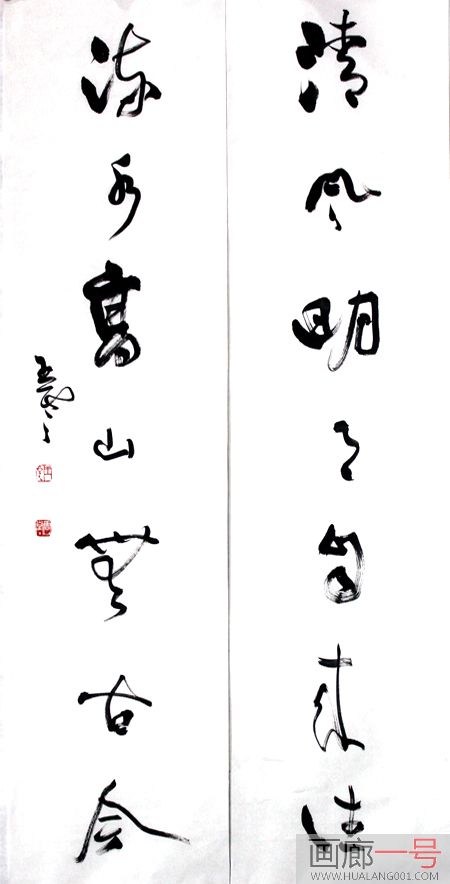 清风明月自来往
流水高山無古今
画廊一号
WWW.HUALANG001.COM